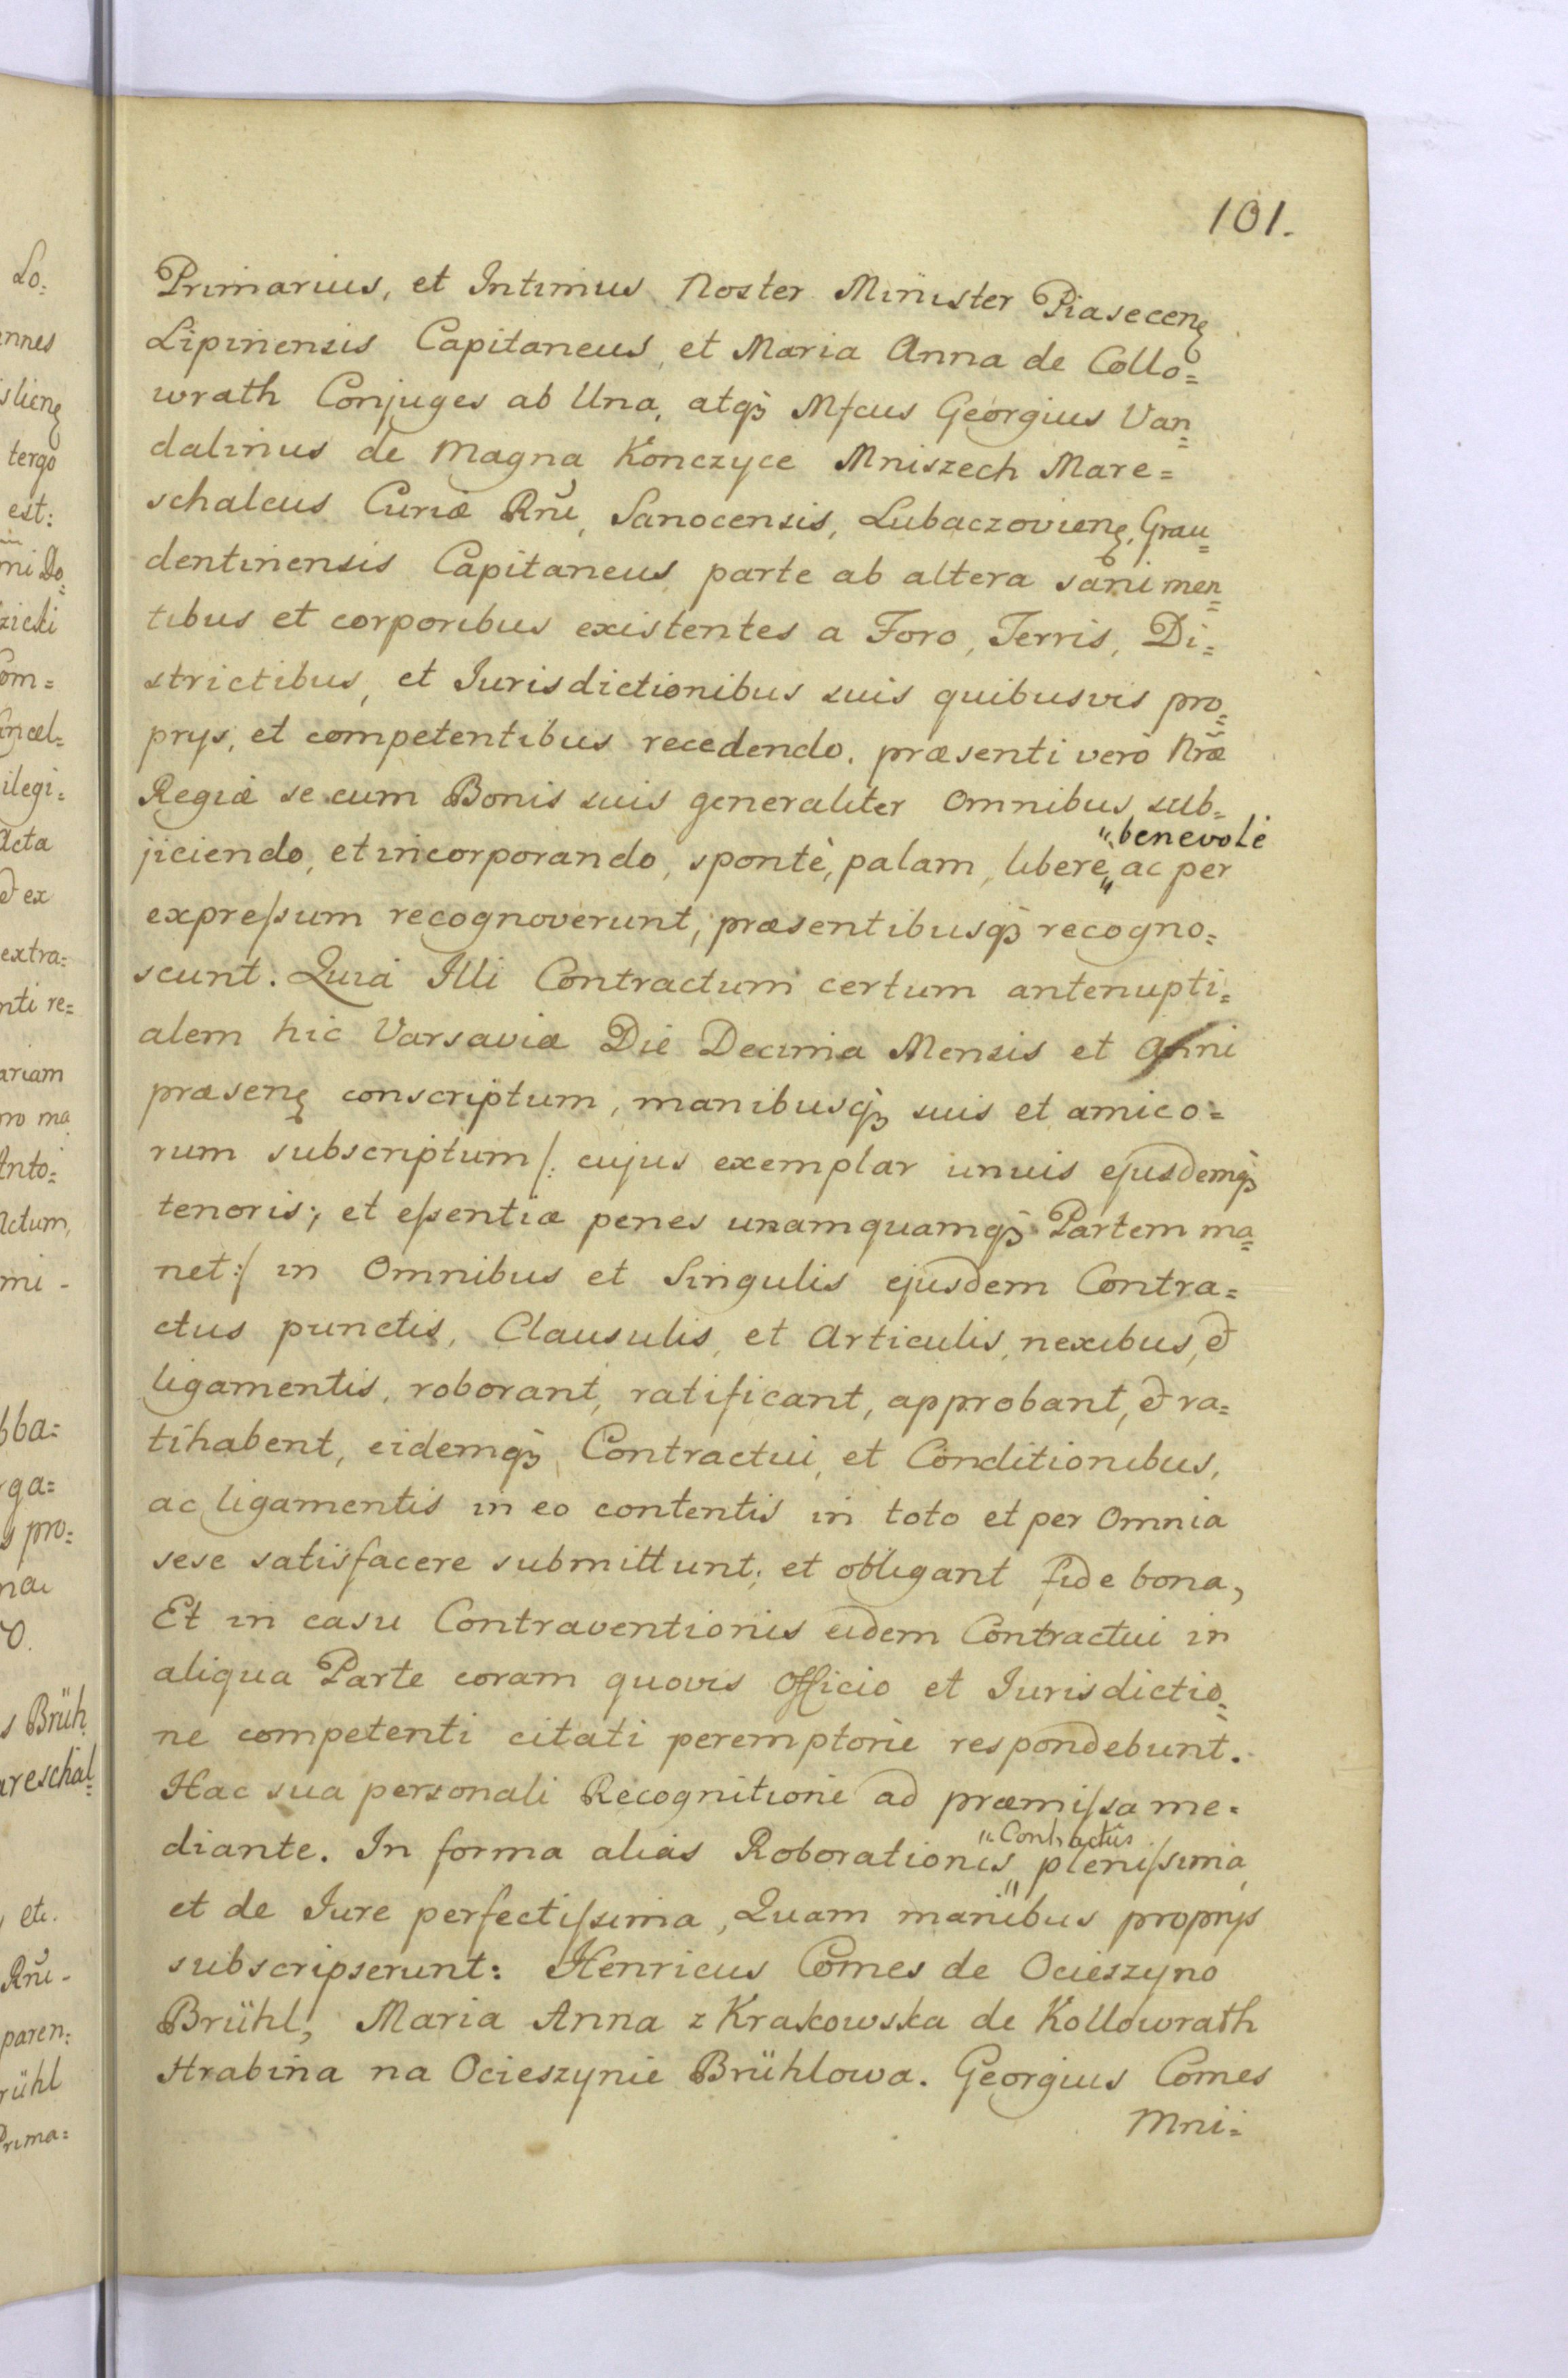 101.
Primarius, et Intimus Noster Minister Piasecenę
Lipinensis Capitaneus, et Maria Anna de Collo=
wrath Conjuges ab Una, atqȝ Mfcus Georgius Van=
dalinus de Magna Konczyce Mniszech Mare=
schalcus Curiæ Rñi, Sanocensis, Lubaczovienę, Grau=
dentinensis Capitaneus parte ab altera sani men=
tibus et corporibus existentes a Foro, Terris, Di=
strictibus, et Jurisdictionibus suis quibusvis pro=
prys, et competentibus recedendo. præsenti verò Nræ̃
Regiæ se cum Bonis suis generaliter Omnibus sub=
jiciendo, et incorporando, spontè, palam, liberè „benevolè ac per
expreſsum recognoverunt, præsentibusqȝ recogno=
scunt. Quia Illi Contractum certum antenupti=
alem hic Varsaviæ Die Decima Mensis et Anni
præsenę conscriptum, manibusqȝ suis et amico=
rum subscriptum /: cujus exemplar unius ejusdemqȝ
tenoris; et eſsentiæ penes unamquamqȝ Partem ma=
net:/ in Omnibus et Singulis ejusdem Contra=
ctus punctis, Clausulis, et Articulis, nexibus, &
ligamentis, roborant, ratificant, approbant, & ra=
tihabent, eidemqȝ Contractui, et Conditionibus,
ac ligamentis in eo contentis in toto et per Omnia
sese satisfacere submittunt; et obligant fide bona,
Et in casu Contraventionis eidem Contractui in
aliqua Parte coram quovis Officio et Jurisdictio=
ne competenti citati peremptorie respondebunt.
Hac sua personali Recognitione ad præmiſsa me=
diante. In forma alias Roborationis „Contractûs pleniſsima
et de Jure perfectiſsima, Quam manibus proprys
subscripserunt: Henricus Comes de Ocieszyno
Brühl, Maria Anna z Krakowska de Kollowrath
Hrabina na Ocieszynie Brühlowa. Georgius Comes
Mni=
Lo=
nnes
slienę
tergo
est:
mi Do=
zicki
Com=
Cancel=
ilegi=
Acta
& ex
extra=
nti re=
ariam
ro ma
Anto=
Actum,
mi -
bba=
rga=
s pro=
nai
o.
s Brüh
areschal=
, etc.
Rñi -
paren=
rühl
Prima=